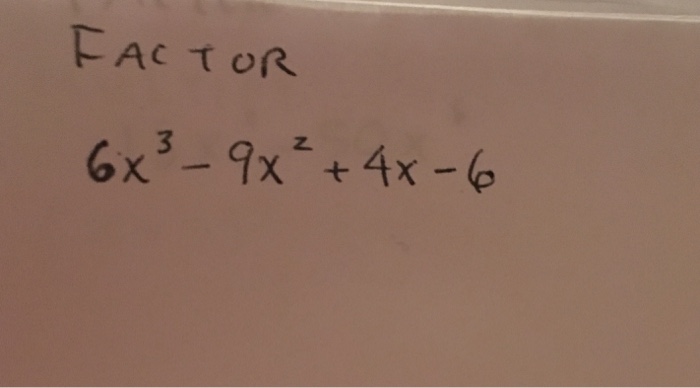 FACTOR
6x³ - 9x² + 4x - 6